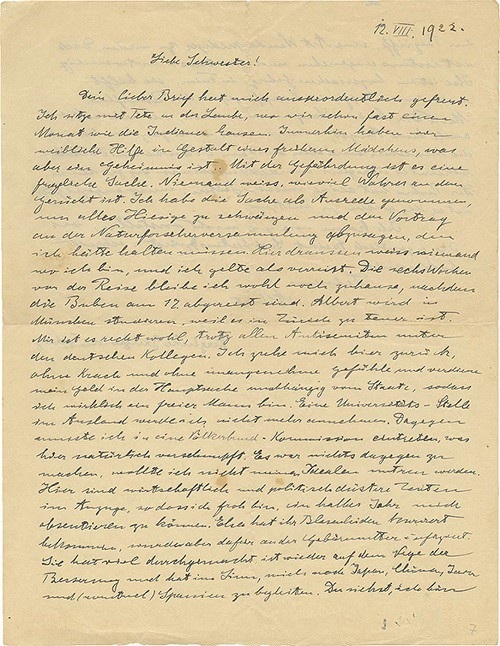 12. VIII. 1922.
Liebe Schwester!
Dein lieber Brief hat mich ausserordentlich gefreut.
Ich sitze mit Tete in der Laube, wo wir schon fast einen
Monat wie die Indianer hausen. Immerhin haben wir
weibliche Hilfe in Gestalt eines Mädchens, was
aber ein Geheimnis ist. Mit der Gefährdung ist es eine
fragliche Sache. Niemand weiss, wieviel Wahres an dem
Gerücht ist. Ich habe die Sache als Ausrede genommen,
um alles Hiesige zu schwänzen und den Vortrag
an der Naturforscherversammlung abzusagen, den
ich hätte halten müssen. Hier draussen weiss niemand
wo ich bin, und ich gelte als verreist. Die sechs Wochen
vor der Reise bleibe ich wohl noch zuhause, nachdem
die Buben am 17. abgereist sind. Albert wird in
München studieren, weil es in Zürich zu teuer ist.
Mir ist es recht wohl, trotz allen Antisemiten unter
den deutschen Kollegen. Ich gehe mich hier zurück,
ohne Krach und ohne unangenehme Gefühle und verdiene
mein Geld in der Hauptsache unabhängig vom Staate, sodass
ich wirklich ein freier Mann bin. Eine Universitäts-Stelle
im Ausland würde ich nicht mehr annehmen. Dagegen
musste ich in eine Völkerbund-Kommission eintreten, was
hier natürlich verschnupft. Es war nichts dagegen zu
machen, wollte ich nicht meinen Idealen untreu werden.
Hier sind wirtschaftlich und politisch düstere Zeiten
im Anzuge, sodass ich froh bin, ein halbes Jahr mich
absentieren zu können. Elsa hat ihr Blasenleiden kuriert
bekommen, wurde aber dafür an der Gebärmutter infiziert.
Sie hat viel durchgemacht ist wieder auf dem Wege der
Besserung und hat im Sinn, mich nach Japan, China, Java
und (eventuell) Spanien zu begleiten. Du siehst, ich bin
7